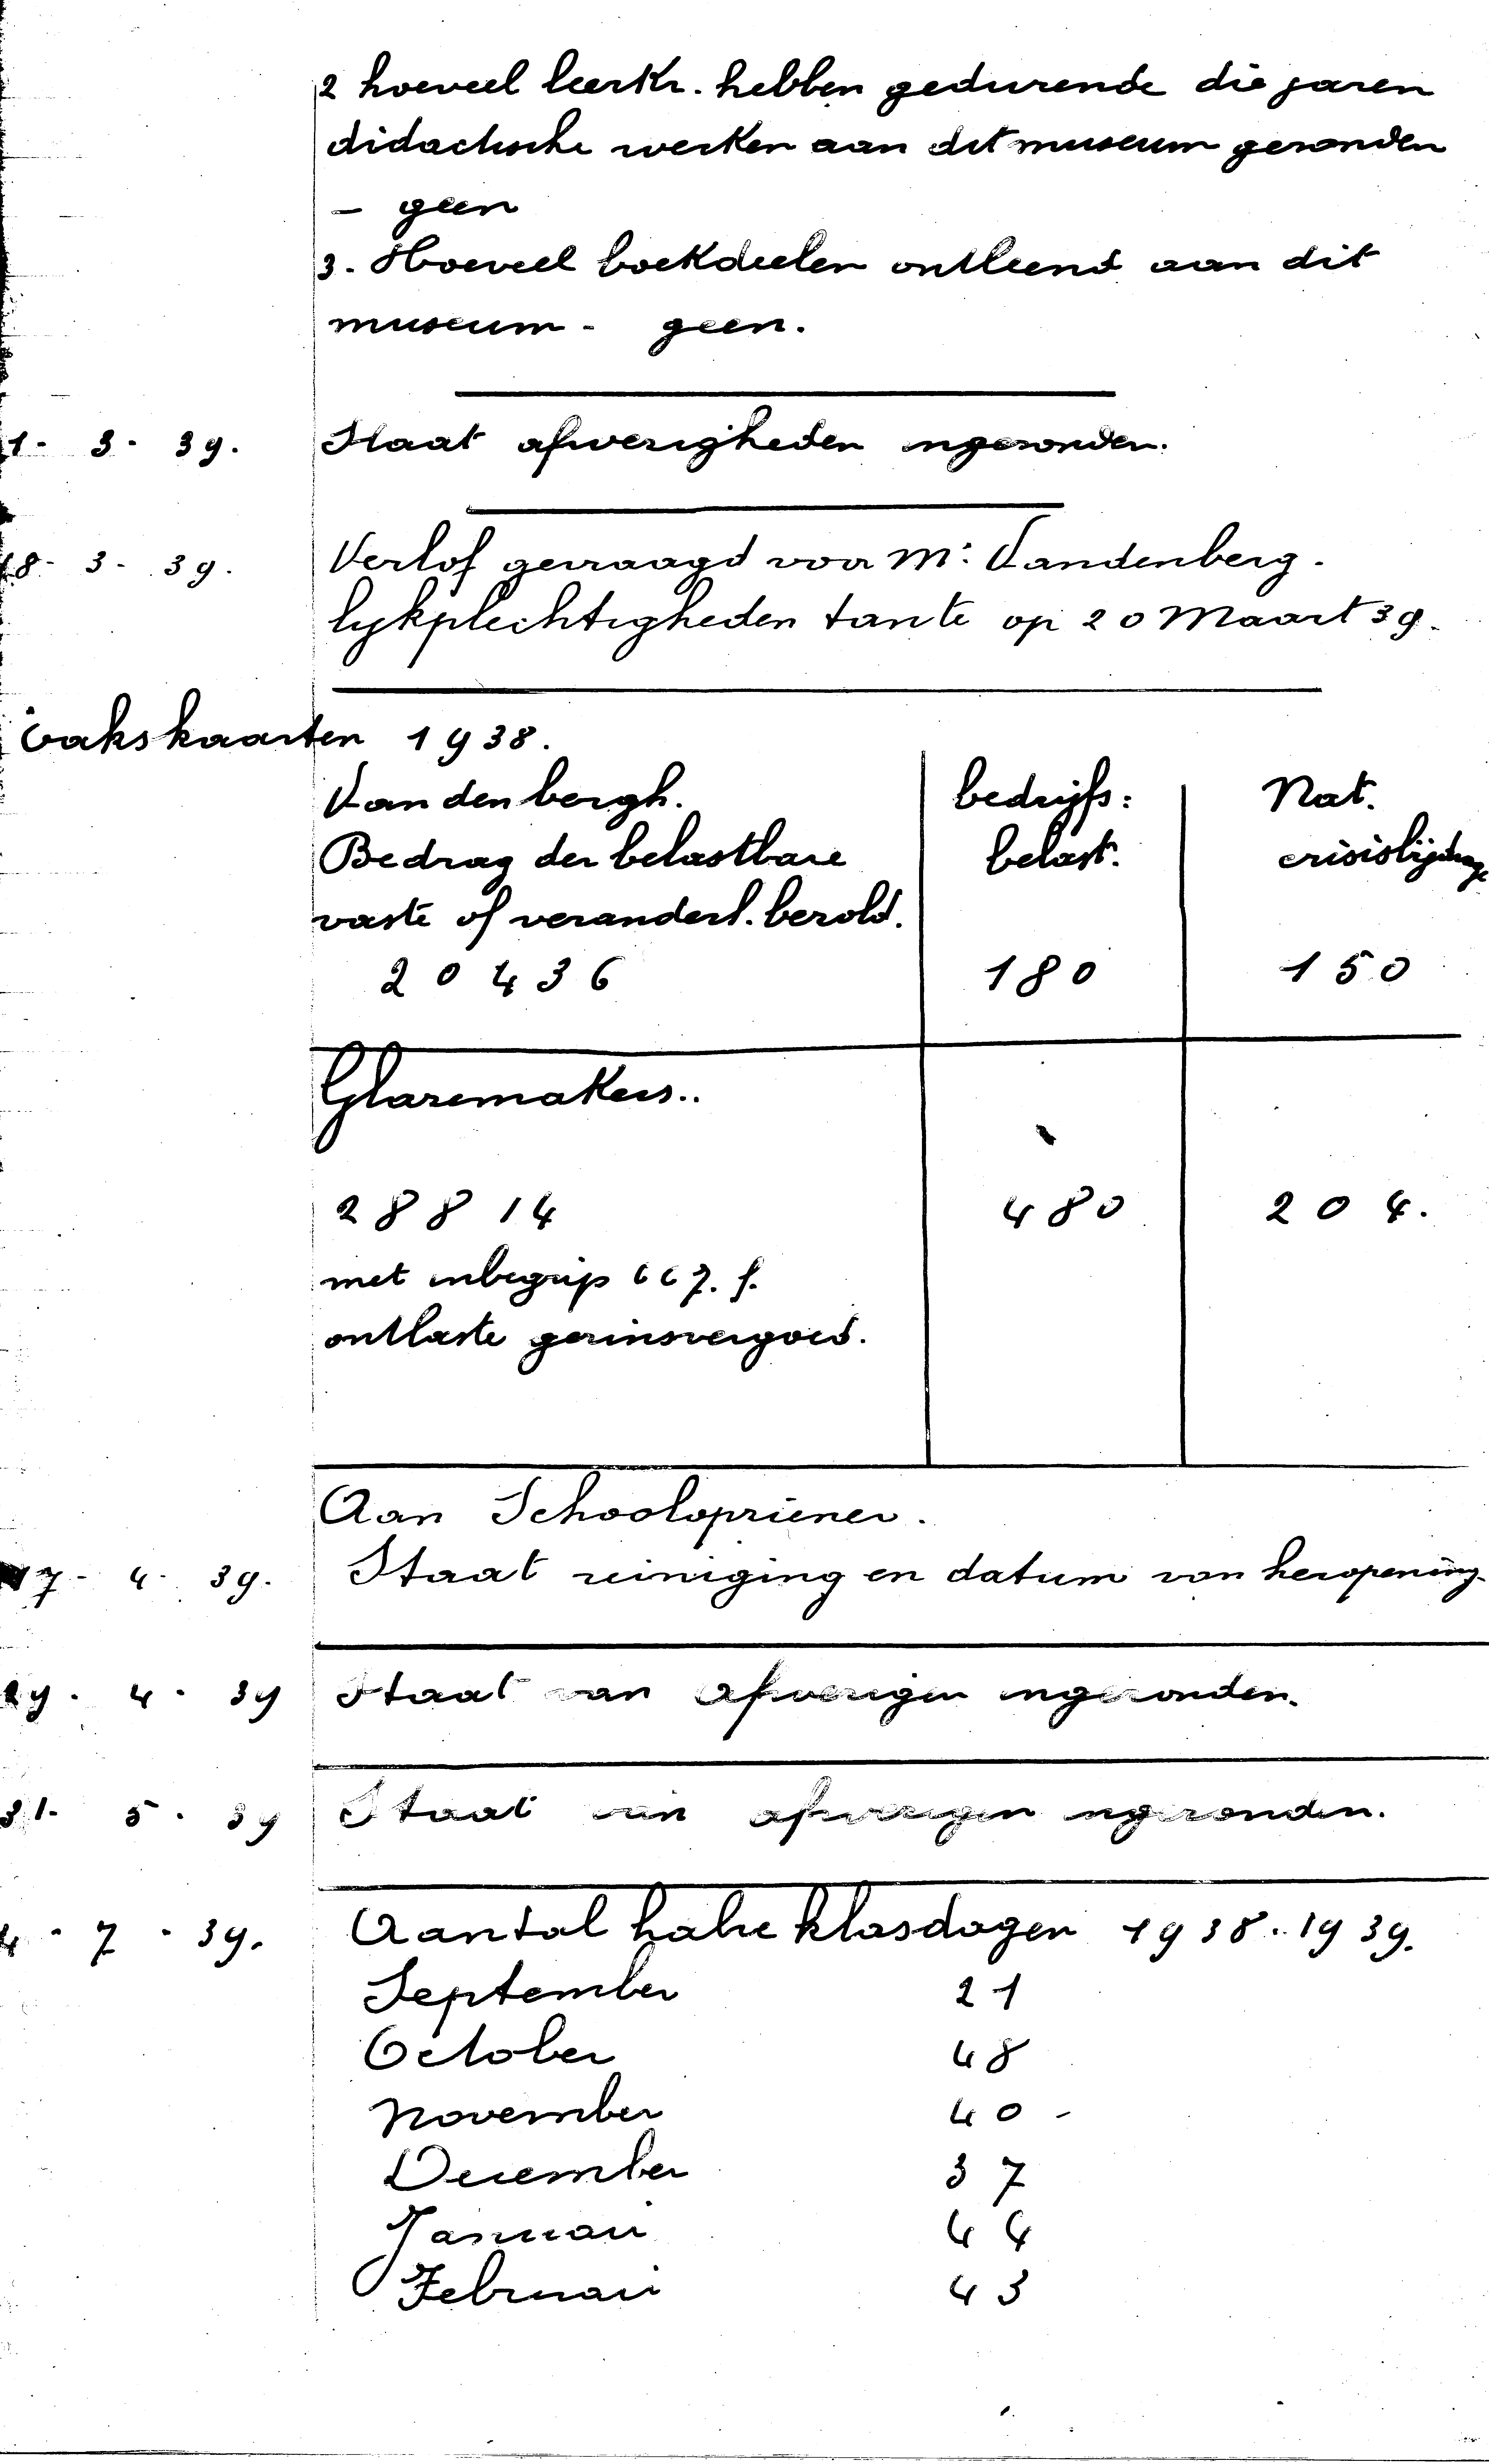 2 hoeveel leerkr. hebben gedurende die jaren
didactische werken aan dit museum gezonden
- geen
3. Hoeveel boekdeelen ontleend aan dit
museum - geen.
1 - 3 - 39. Staat afwezigheden ingezonden.
18 - 3 - 39. Verlof gevraagd voor Mr Vandenberg.
lykplechtigheden tante op 20 Maart 39.
Zakskaarten 1938.
Vandenbergh. bedrijfs: Nat.
Bedrag der belastbare belast. crisisbijdrage
vaste of veranderl. bezold.
20436 180 150
Glazemakers..
28814 480 204.
met inbegrip 667. f.
ontlaste gezinsvergoed.
Aan Schoolopziener.
17 - 4 - 39. Staat reiniging en datum van heropening.
29 - 4 - 39 Staat van afwezigen ingezonden.
31 - 5 - 39 Staat van afwezigen ingezonden.
4 - 7 - 39. Aantal halve klasdagen 1938 - 1939.
September 21
October 48
November 40 -
December 37
Januari 44
Februari 43